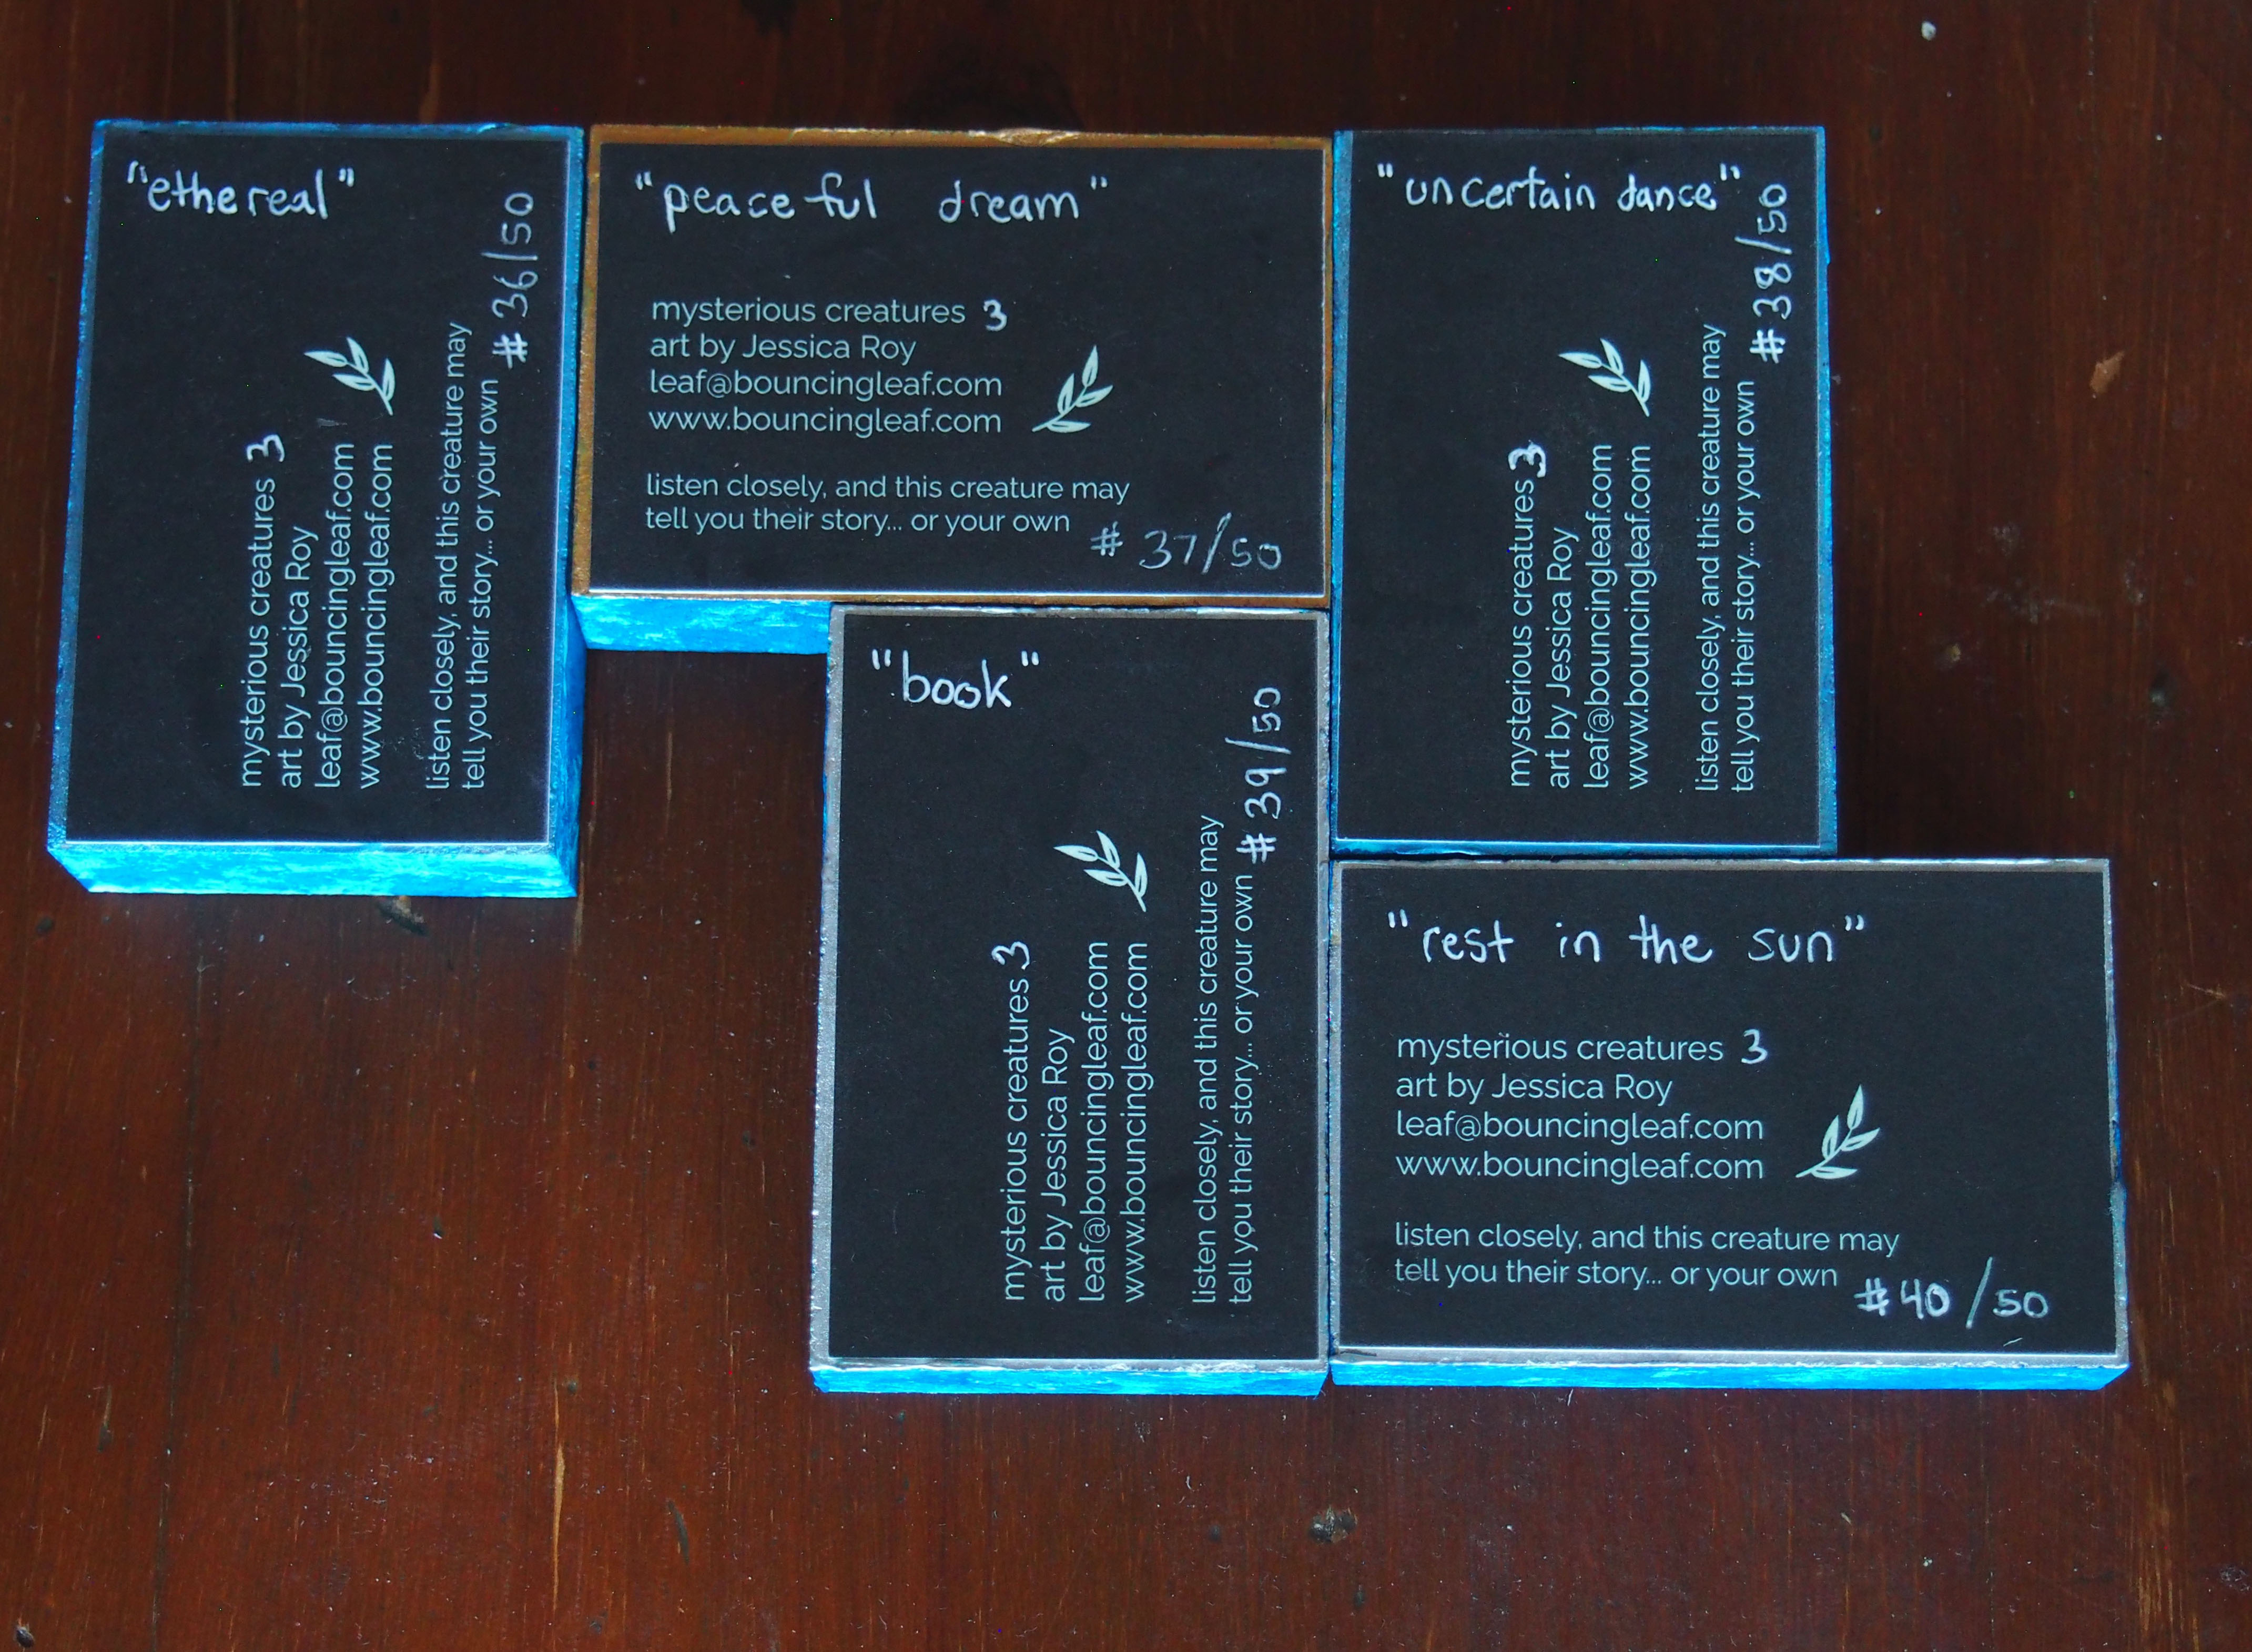 "ethereal"
mysterious creatures 3
art by Jessica Roy
leaf@bouncingleaf.com
www.bouncingleaf.com
listen closely, and this creature may
tell you their story... or your own
#36/50
"peaceful dream"
mysterious creatures 3
art by Jessica Roy
leaf@bouncingleaf.com
www.bouncingleaf.com
listen closely, and this creature may
tell you their story... or your own
#37/50
"uncertain dance"
mysterious creatures 3
art by Jessica Roy
leaf@bouncingleaf.com
www.bouncingleaf.com
listen closely, and this creature may
tell you their story... or your own
#38/50
"book"
mysterious creatures 3
art by Jessica Roy
leaf@bouncingleaf.com
www.bouncingleaf.com
listen closely, and this creature may
tell you their story... or your own
#39/50
"rest in the sun"
mysterious creatures 3
art by Jessica Roy
leaf@bouncingleaf.com
www.bouncingleaf.com
listen closely, and this creature may
tell you their story... or your own
#40/50